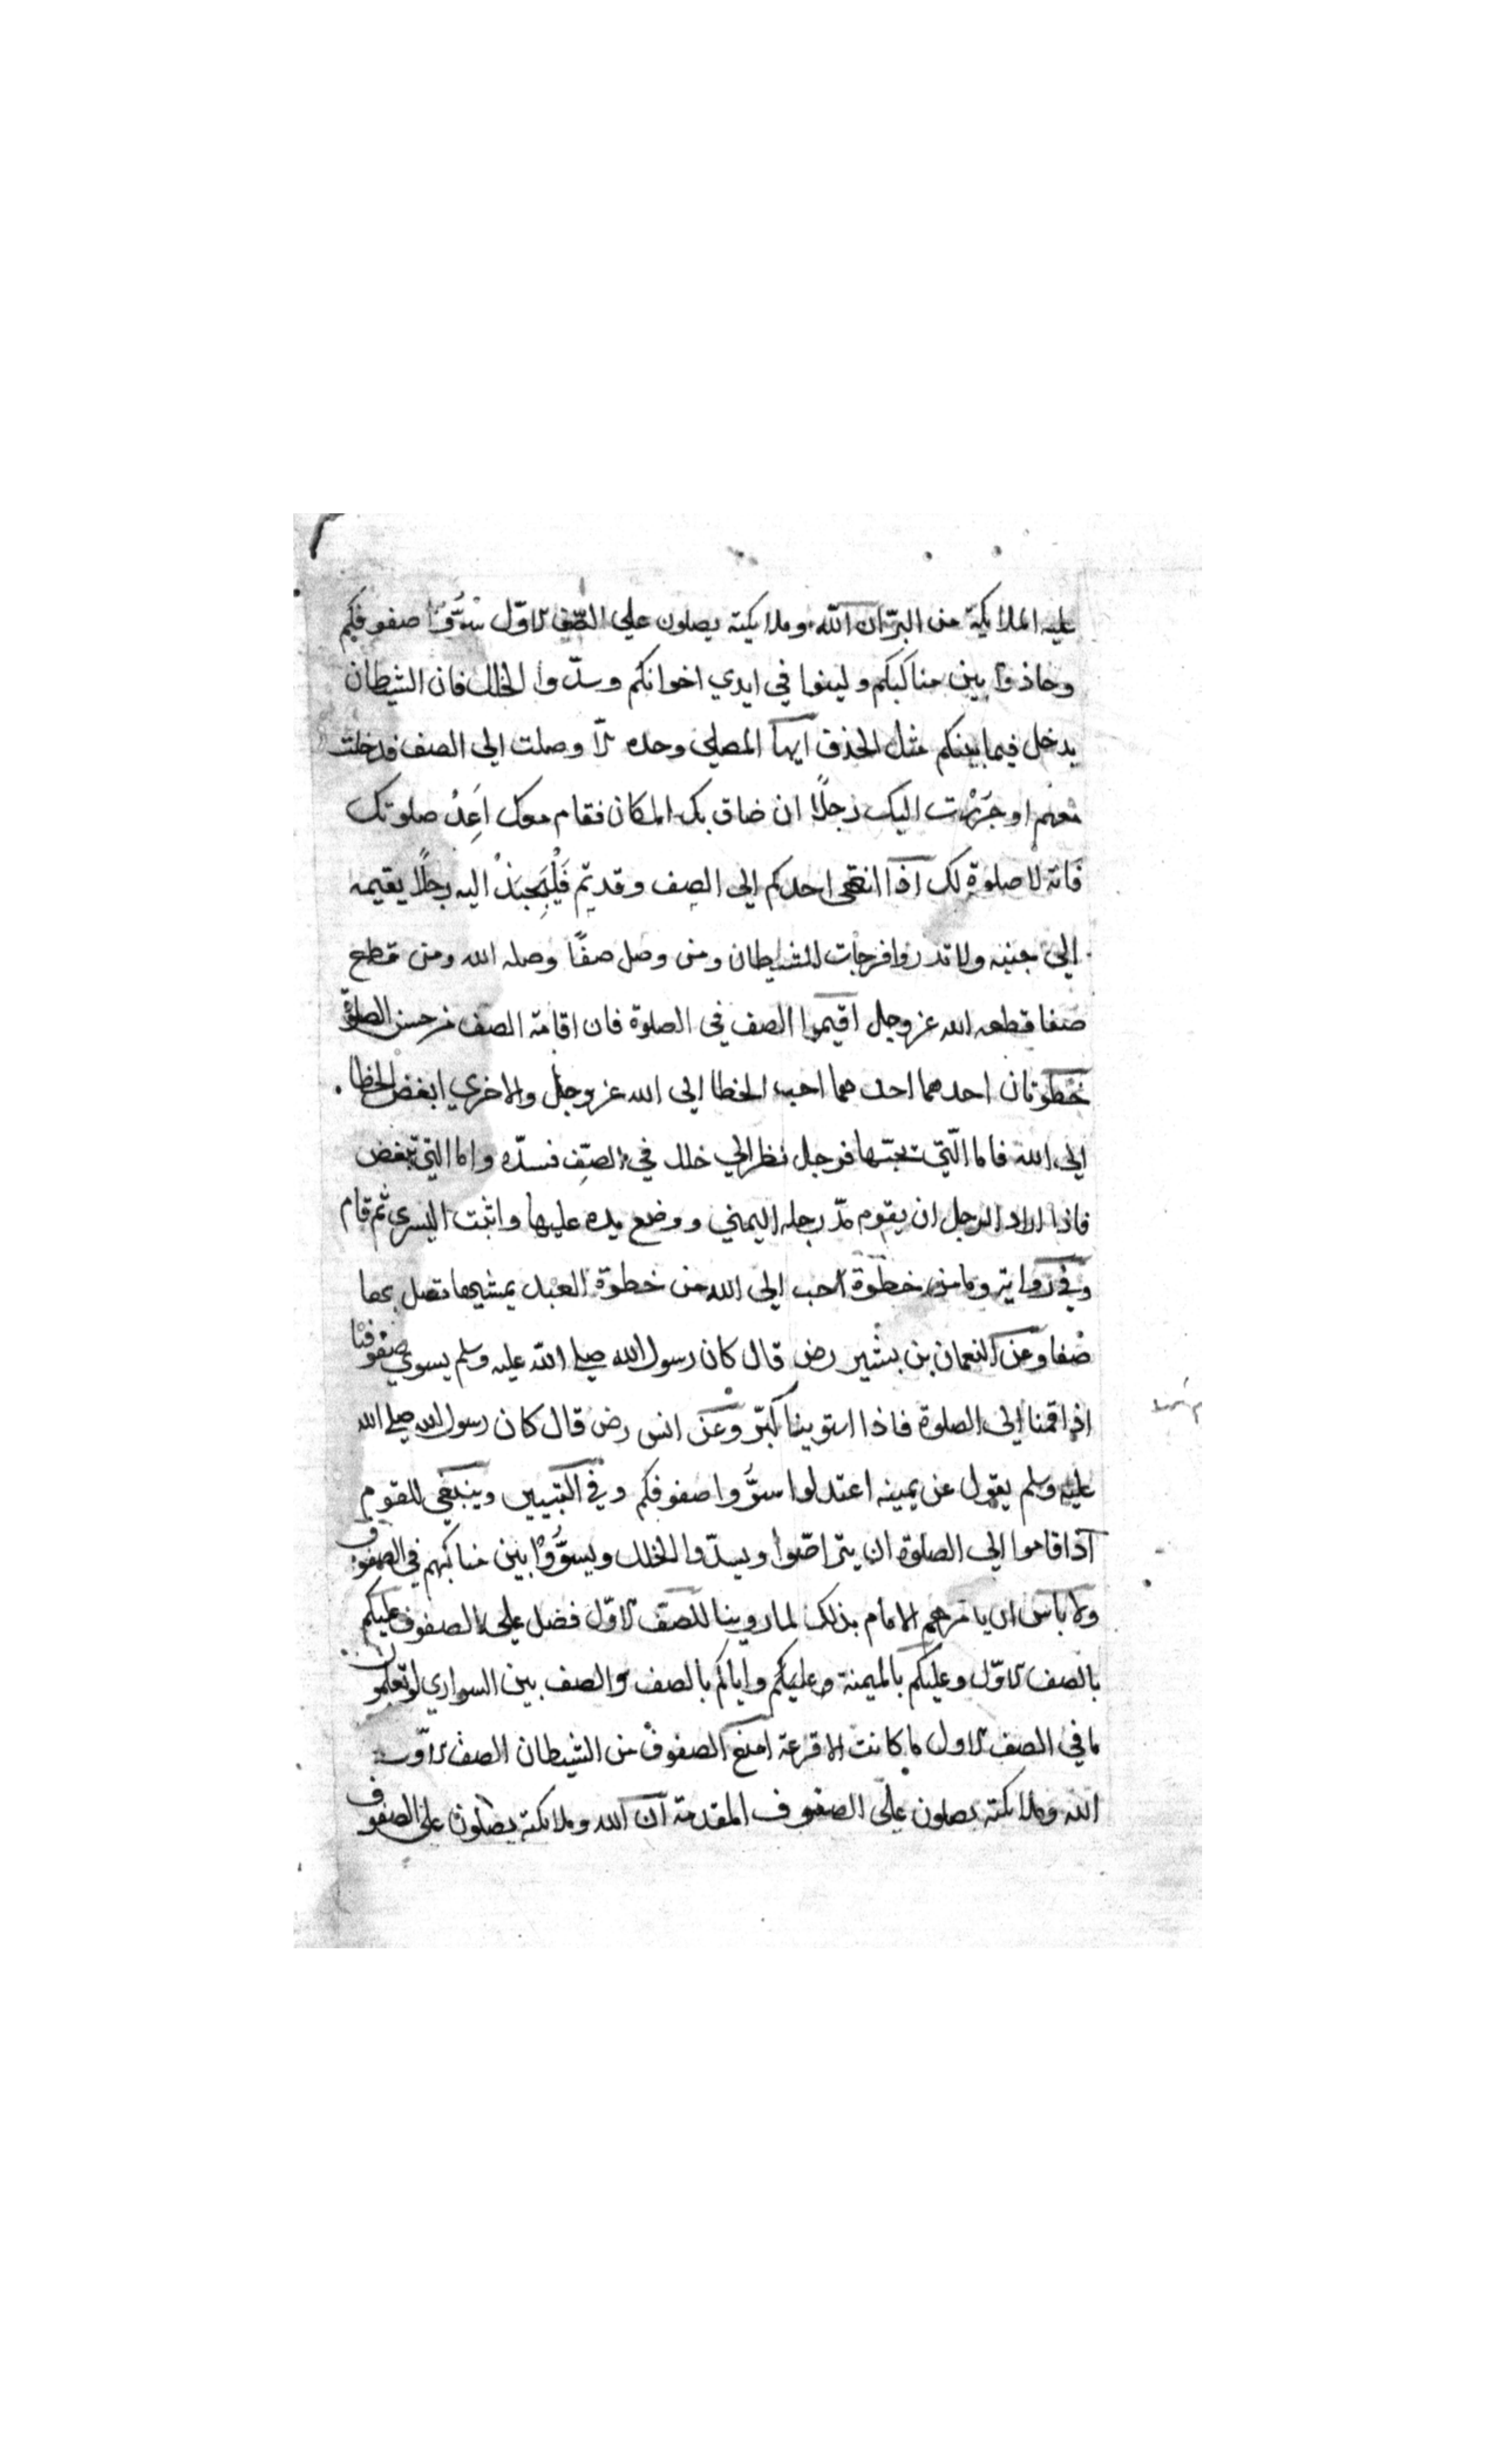 عليه الملايكة من البرّ ان الله وملايكته يصلون على الصّف الاوّل سَوُّوا صفوفكم
وحاذوا بين مناكبكم ولينوا في ايدي اخوانكم وسدّوا الخلل فان الشيطان
يدخل فيما بينكم مثل الحذف ايها المصلي وحده الاّ وصلت الى الصف فدخلت
معهم او جَرَرْت اليك رجلًا ان ضاق بك المكان فقام معك اَعِدْ صلوتك
فانه لا صلوة لك اذا انتهى احدكم الى الصف وقد تمّ فَلْيَجبِذْ اليه رجلًا يقيمه
الى جنبه ولا تذروا فرجات للشيطان ومن وصل صفًا وصله الله ومن قطع
صفا قطعه الله عز وجل اقيموا الصف في الصلوة فان اقامة الصف من حسن الصلوة
خطوتان احدهما احدهما احب الخطا الى الله عز وجل والاخري ابغض الخطا
الى الله فاما الّتي يحبّها فرجل نظر الى خلل في الصّف فسدّه واما التي يبغض
فاذا اراد الرجل ان يقوم مدّ رجله اليمني ووضع يده عليها واثبت اليسرى ثم قام
وفي رواية وما من خطوة احب الى الله من خطوة العبد يمشيها تصل بها
صفا وعن النعمان بن بشير رض قال كان رسول الله صلى الله عليه وسلم يسوي صفوفنا
اذا قمنا الى الصلوة فاذا استوينا كبّر وعن انس رض قال كان رسول الله صلى الله
عليه وسلم يقول عن يمينه اعتدلوا سوُّوا صفوفكم وفي التبيين وينبغي للقوم
اذا قاموا الى الصلوة ان يتراصّوا ويسدّوا الخلل ويسوُّوا بين مناكبهم في الصفوف
ولا باس ان يامرهم الامام بذلك لما روينا للصف الاوّل فضل على الصفوف عليكم
بالصف الاوّل وعليكم بالميمنة وعليكم واياكم بالصف والصف بين السواري لو تعلمون
ما في الصف الاول ما كانت الا قرعة امنع الصفوف من الشيطان الصف الاوّل
الله وملائكته يصلون على الصفوف المقدمة ان الله وملائكته يصلون على الصفوف